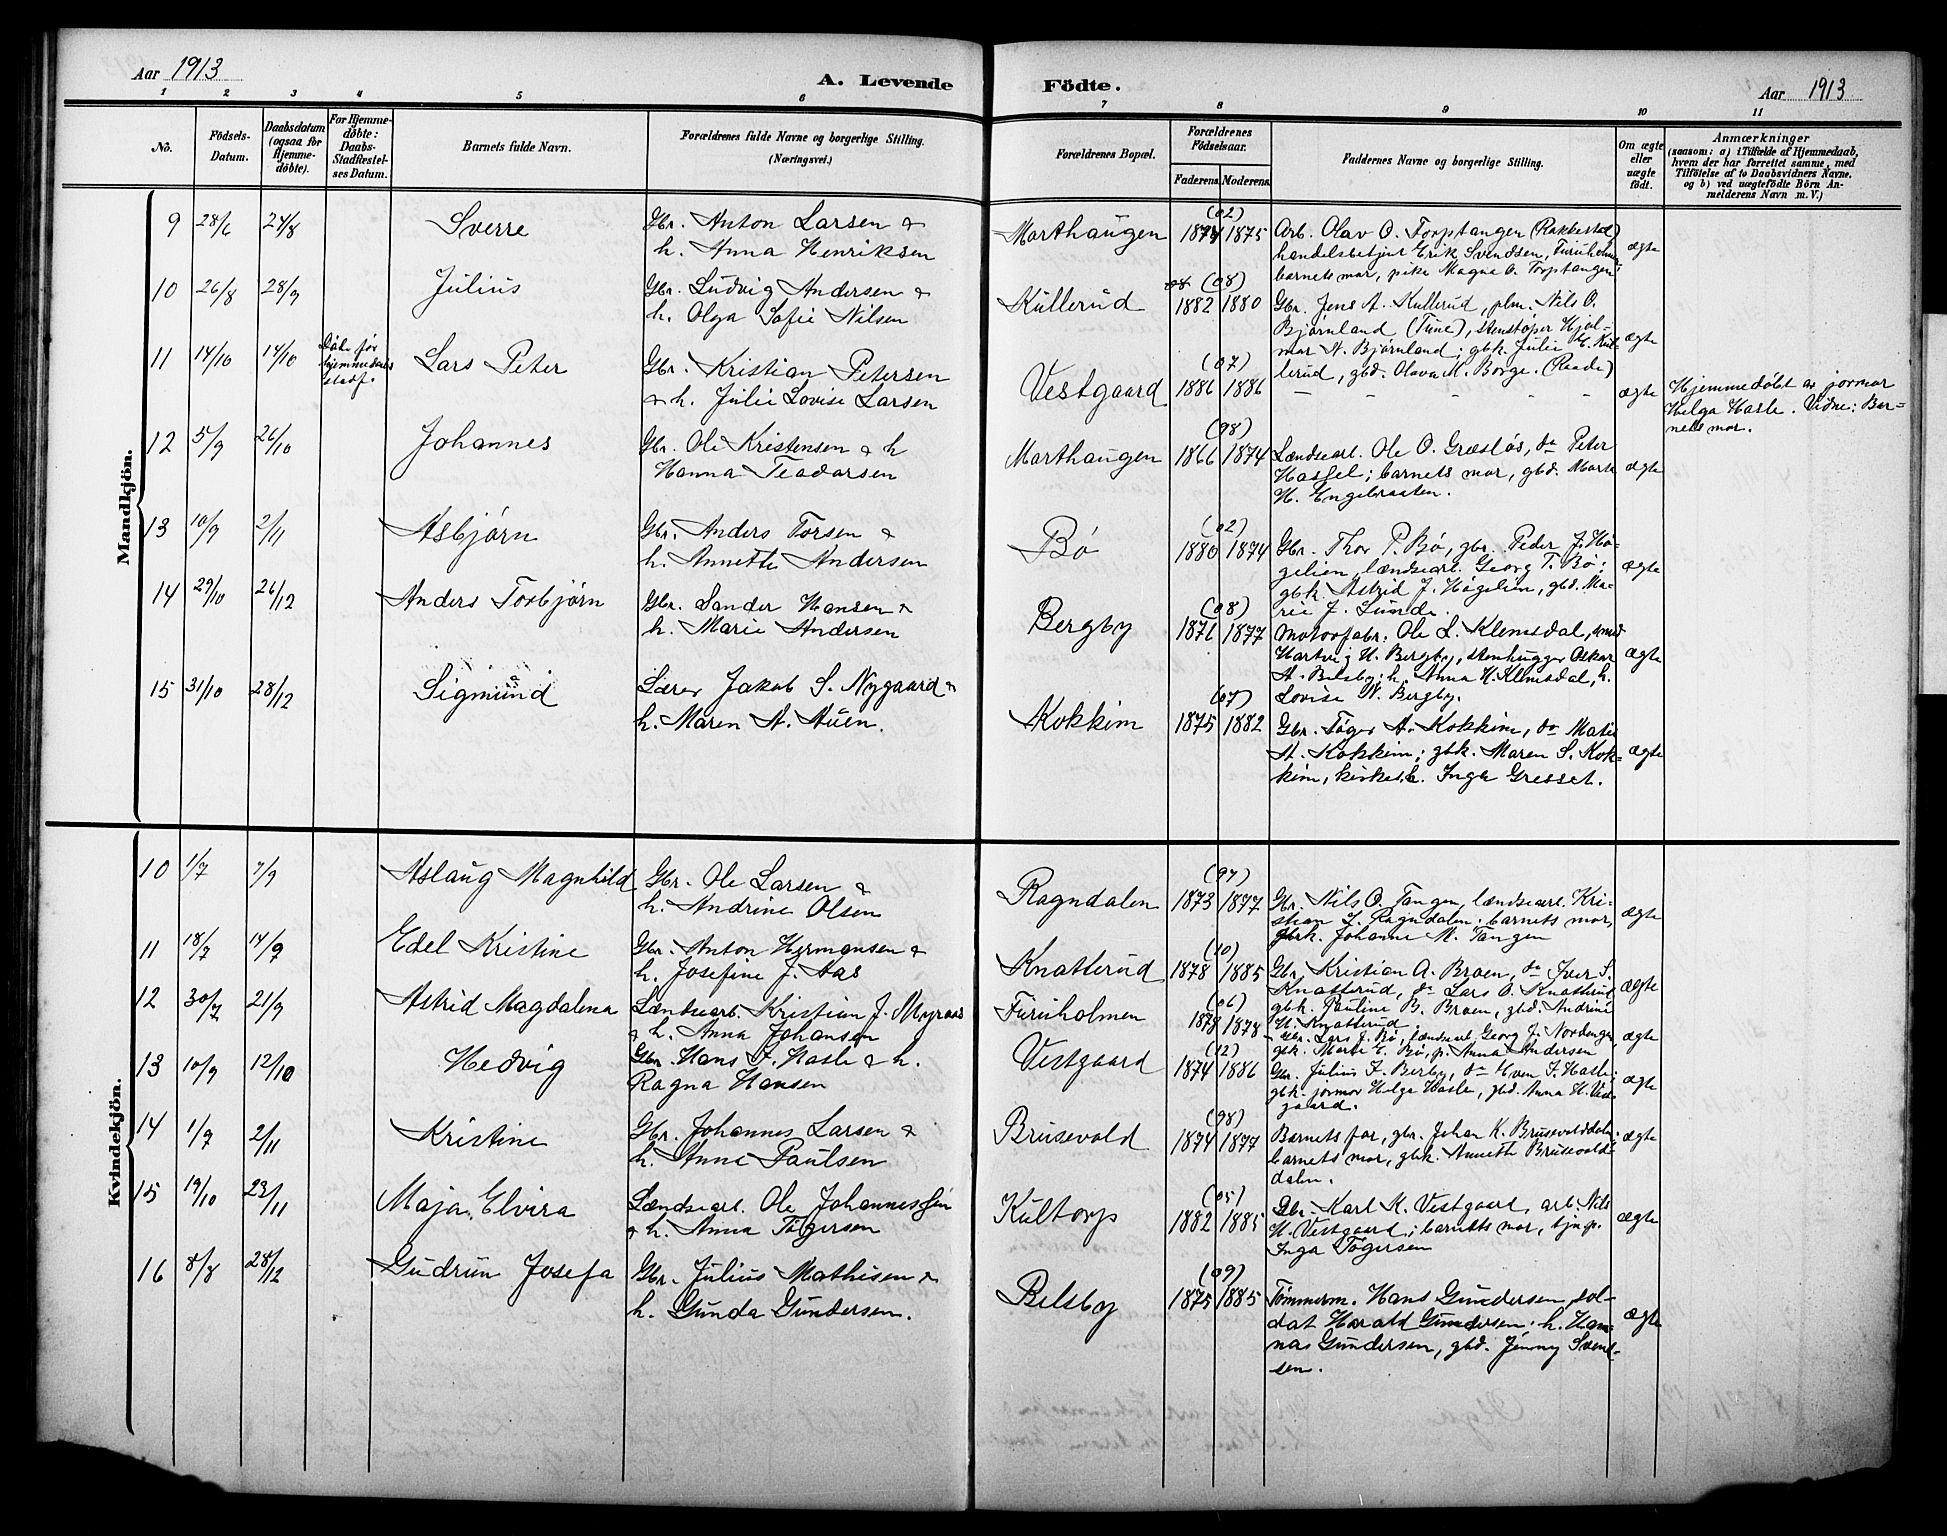 Aar 1913
A. Levende
Födte.
Aar 1913
1 2 3 4 5 6 7 8 9 10 11
No.
Födsels-
Datum.
Daabsdatum
(ogsaa for
Hjemme-
døbte).
For Hjemme-
døbte:
Daabs-
Stadfæstel-
ses Datum.
Barnets fulde Navn.
Forældrenes fulde Navne og borgerlige Stilling.
(Næringsvei.)
Forældrenes Bopæl.
Forældrenes
Födselsaar.
Faderens. Moderens.
Faddernes Navne og borgerlige Stilling.
Om ægte
eller
uægte
født.
Anmærkninger
(saasom: a) i Tilfælde af Hjemmedaab,
hvem der har forrettet samme, med
Tilföielse af to Daabsvidners Navne,
og b) ved uægtefödte Börn An-
melderens Navn m. V.)
Mandkjön.
9 28/6 24/8 Sverre
Gbr. Anton Larsen &
h. Anna Henriksen
Morthaugen
(02)
1874 1875
Arb. Olav O. Torptangen (Rakkestad)
handelsbetjent Erik Svendsen, Furuholmen;
barnets mor, pike Magna O. Torptangen
ægte
10 26/8 28/9 Julius
Gbr. Ludvig Andersen &
h. Olga Sofie Nilsen
Kullerud
(08)
1882 1880
Gbr. Jens A. Kullerud, plm. Nils O.
Bjørnland (Tune), stenstøper Hjal-
mar A. Bjørnland; gbk. Julie E. Kul-
lerud, gbd. Olava M. Borge. (Raade)
ægte
11 14/10 14/10
Døde før
hjemmedaabs
stadf.
Lars Peter
Gbr. Kristian Petersen
& h. Julie Lovise Larsen
Vestgaard
(07)
1886 1886
– – – – –
ægte
Hjemmedøbt av jormor
Helga Hasle. Vidne: Bar-
nets mor.
12 5/9 26/10 Johannes
Gbr. Ole Kristensen & h
Hanna Teodorsen
Morthaugen
(98)
1866 1874
Lændsearb. Ole O. Græsløs, do Peter
Hassel; barnets mor, gbd. Marte
H. Engebraaten.
ægte
13 10/9 2/11 Asbjørn
Gbr. Anders Torsen &
h. Annette Andersen
Bø
(02)
1880 1874
Gbr. Thor P. Bø, gbr. Peder J. Hø-
gelien, lændsearb. Georg T. Bø;
gbk. Astrid J. Høgelien, gbd. Ma-
rie J. Lunde.
ægte
14 29/10 26/12 Anders Torbjørn
Gbr. Sander Hansen &
h. Marie Andersen
Bergby
(08)
1871 1877
Motorfabr. Ole L. Klemsdal, smed
Hartvig H. Bergby, stenhugger Oskar
A. Belsby; h. Anna H. Klemsdal, h.
Lovise N. Bergby.
ægte
15 31/10 28/12 Sigmund
Lærer Jakob S. Nygaard &
h. Maren A. Auen.
Kokkim
(07)
1875 1882
Gbr. Tøger A. Kokkim, do Matis
A. Kokkim; gbk. Maren S. Kok-
kim, kirkes.h. Inga Gresset.
ægte
Kvindekjön.
10 1/7 7/9 Aslaug Magnhild
Gbr. Ole Larsen &
h. Andrine Olsen
Ragndalen
(97)
1873 1877
Gbr. Nils O. Tangen, lændsearb. Kri-
stian L. Ragndalen; barnets mor,
gbk. Johanne M. Tangen
ægte
11 18/7 14/9 Edel Kristine
Gbr. Anton Hermansen &
h. Josefine J. Aas
Knatterud
(10)
1878 1885
Gbr. Kristian A. Braen, do Iver S.
Knatterud, do Lars O. Knatterud,
gbk. Pauline B. Braen, gbd. Andrine
H. Knatterud
ægte
12 30/7 21/9 Astrid Magdalena
Lændsearb. Kristian J. Myraas
& h. Anna Johansen
Furuholmen
(06)
1878 1878
Gbr. Lars J. Bø, lændsearb. Georg J. Nordenge,
gbk. Marte E. Bø, p. Anna Andersen
ægte
13 10/9 12/10 Hedvig
Gbr. Hans F. Hasle & h.
Ragna Hansen
Vestgaard
(12)
1874 1886
Gbr. Julius F. Berby, do Even F. Hasle;
gbk. jormor Helga Hasle, gbd. Anna H. Vest-
gaard.
ægte
14 1/9 2/11 Kristine
Gbr. Johannes Larsen &
h. Anne Paulsen
Brusevold
(98)
1874 1877
Barnets far, gbr. Johan K. Brusevolddalen;
barnets mor, gbk. Annette Brusevold-
dalen.
ægte
15 19/10 23/11 Maja Elvira
Lændsearb. Ole Johannessen
& h. Anna Tøgersen
Kultorp
(05)
1882 1885
Gbr. Karl K. Vestgaard, arb. Nils
H. Vestgaard; barnets mor, tjnp.
Inga Tøgersen
ægte
16 8/8 28/12 Gudrun Josefa
Gbr. Julius Mathisen &
h. Gunda Gundersen.
Belsby
(09)
1875 1885
Tømmerm. Hans Gundersen, sol-
dat Harald Gundersen; h. Han-
nas Gundersen, gbd. Jenny Svend-
sen.
ægte